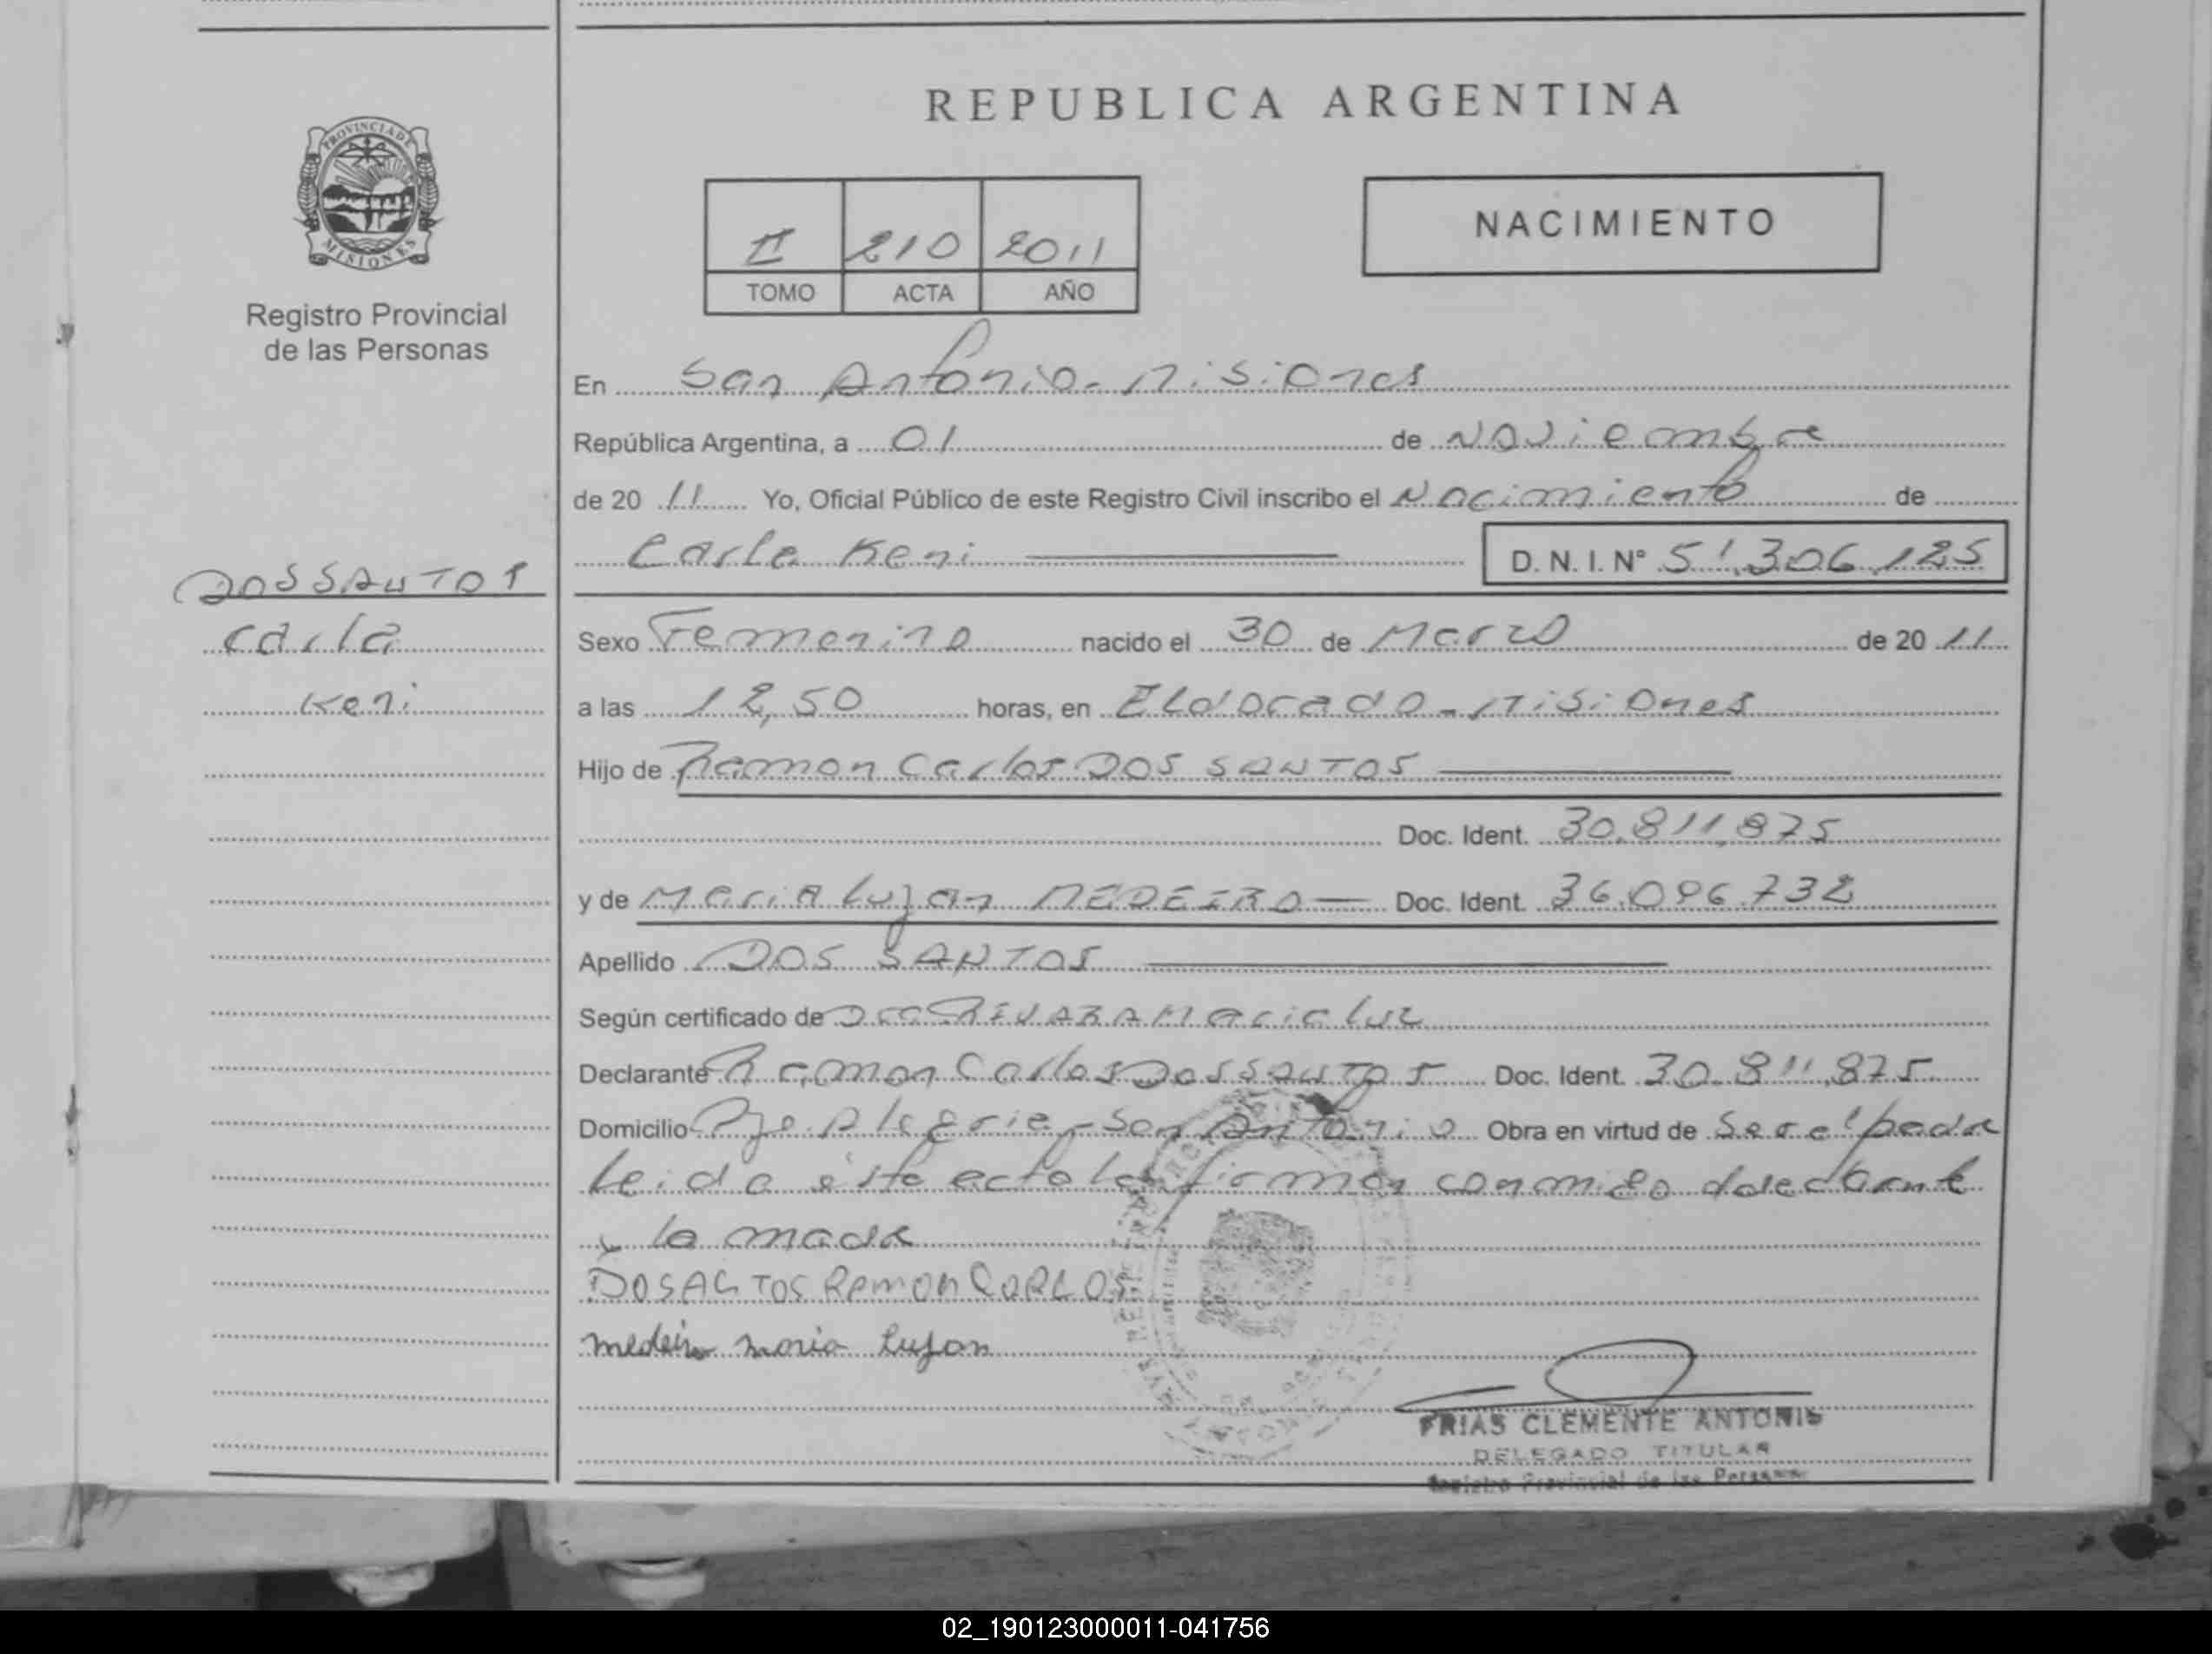 REPUBLICA ARGENTINA
PROVINCIA DE
MISIONES
Registro Provincial
de las Personas
II 210 2011
TOMO ACTA AÑO
NACIMIENTO
En San Antonio - Misiones
República Argentina, a 01 de Noviembre
de 20 11 Yo, Oficial Público de este Registro Civil inscribo el Nacimiento de
Carla Keni D. N. I. Nº 51.306.125
DOS SANTOS
Carla
Keni
Sexo Femenino nacido el 30 de Marzo de 20 11
a las 12,50 horas, en Eldorado - Misiones
Hijo de Ramon Carlos DOS SANTOS
Doc. Ident. 30.811.875
y de Maria Lujan MEDEIRO Doc. Ident. 36.096.732
Apellido DOS SANTOS
Según certificado de Maria Luz
Declarante Ramon Carlos Dos Santos Doc. Ident. 30.811.875
Domicilio Pje. Alegria - San Antonio Obra en virtud de Ser el padre
Leida esta acta la firman conmigo el declarante
y la madre
DOSACTOS RAMON CARLOS
medeiro maria lujan
FRIAS CLEMENTE ANTONIO
DELEGADO TITULAR
Registro Provincial de las Personas
02_190123000011-041756